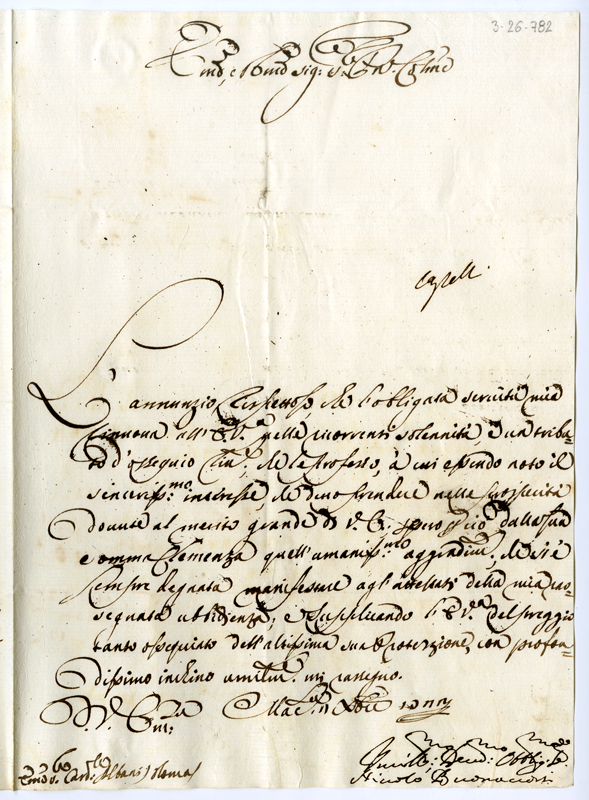 3-26-782
Em.mo e Rmo Sig: e P.ron
L'annunzio rispettoso, che l'obligata servitù mia
rinuova all'E.V. nelle ricorrenti solennità, è un tribu=
to d'ossequio che le professo, à cui essendo noto il
sinceriss.mo interesse, che devo prendere nelle prosperità
dovute al merito grande di V. E. spero che dalla sua
somma Clemenza quell'umaniss.mo aggradim.to che si è
sempre degnata manifestare agl'attestati della mia ras=
segnata ubbidienza; e supplicando l'E.V.a del preggio
tanto ossequiato dell'altissima sua Protezzione, con profon=
dissimo inchino umilm.te mi rassegno.
D. V. Em:za
Em.mo S. Card:le Albani Roma
Humiliss.mo Dev.mo Obblig.mo
Nicolò Buonaccorsi